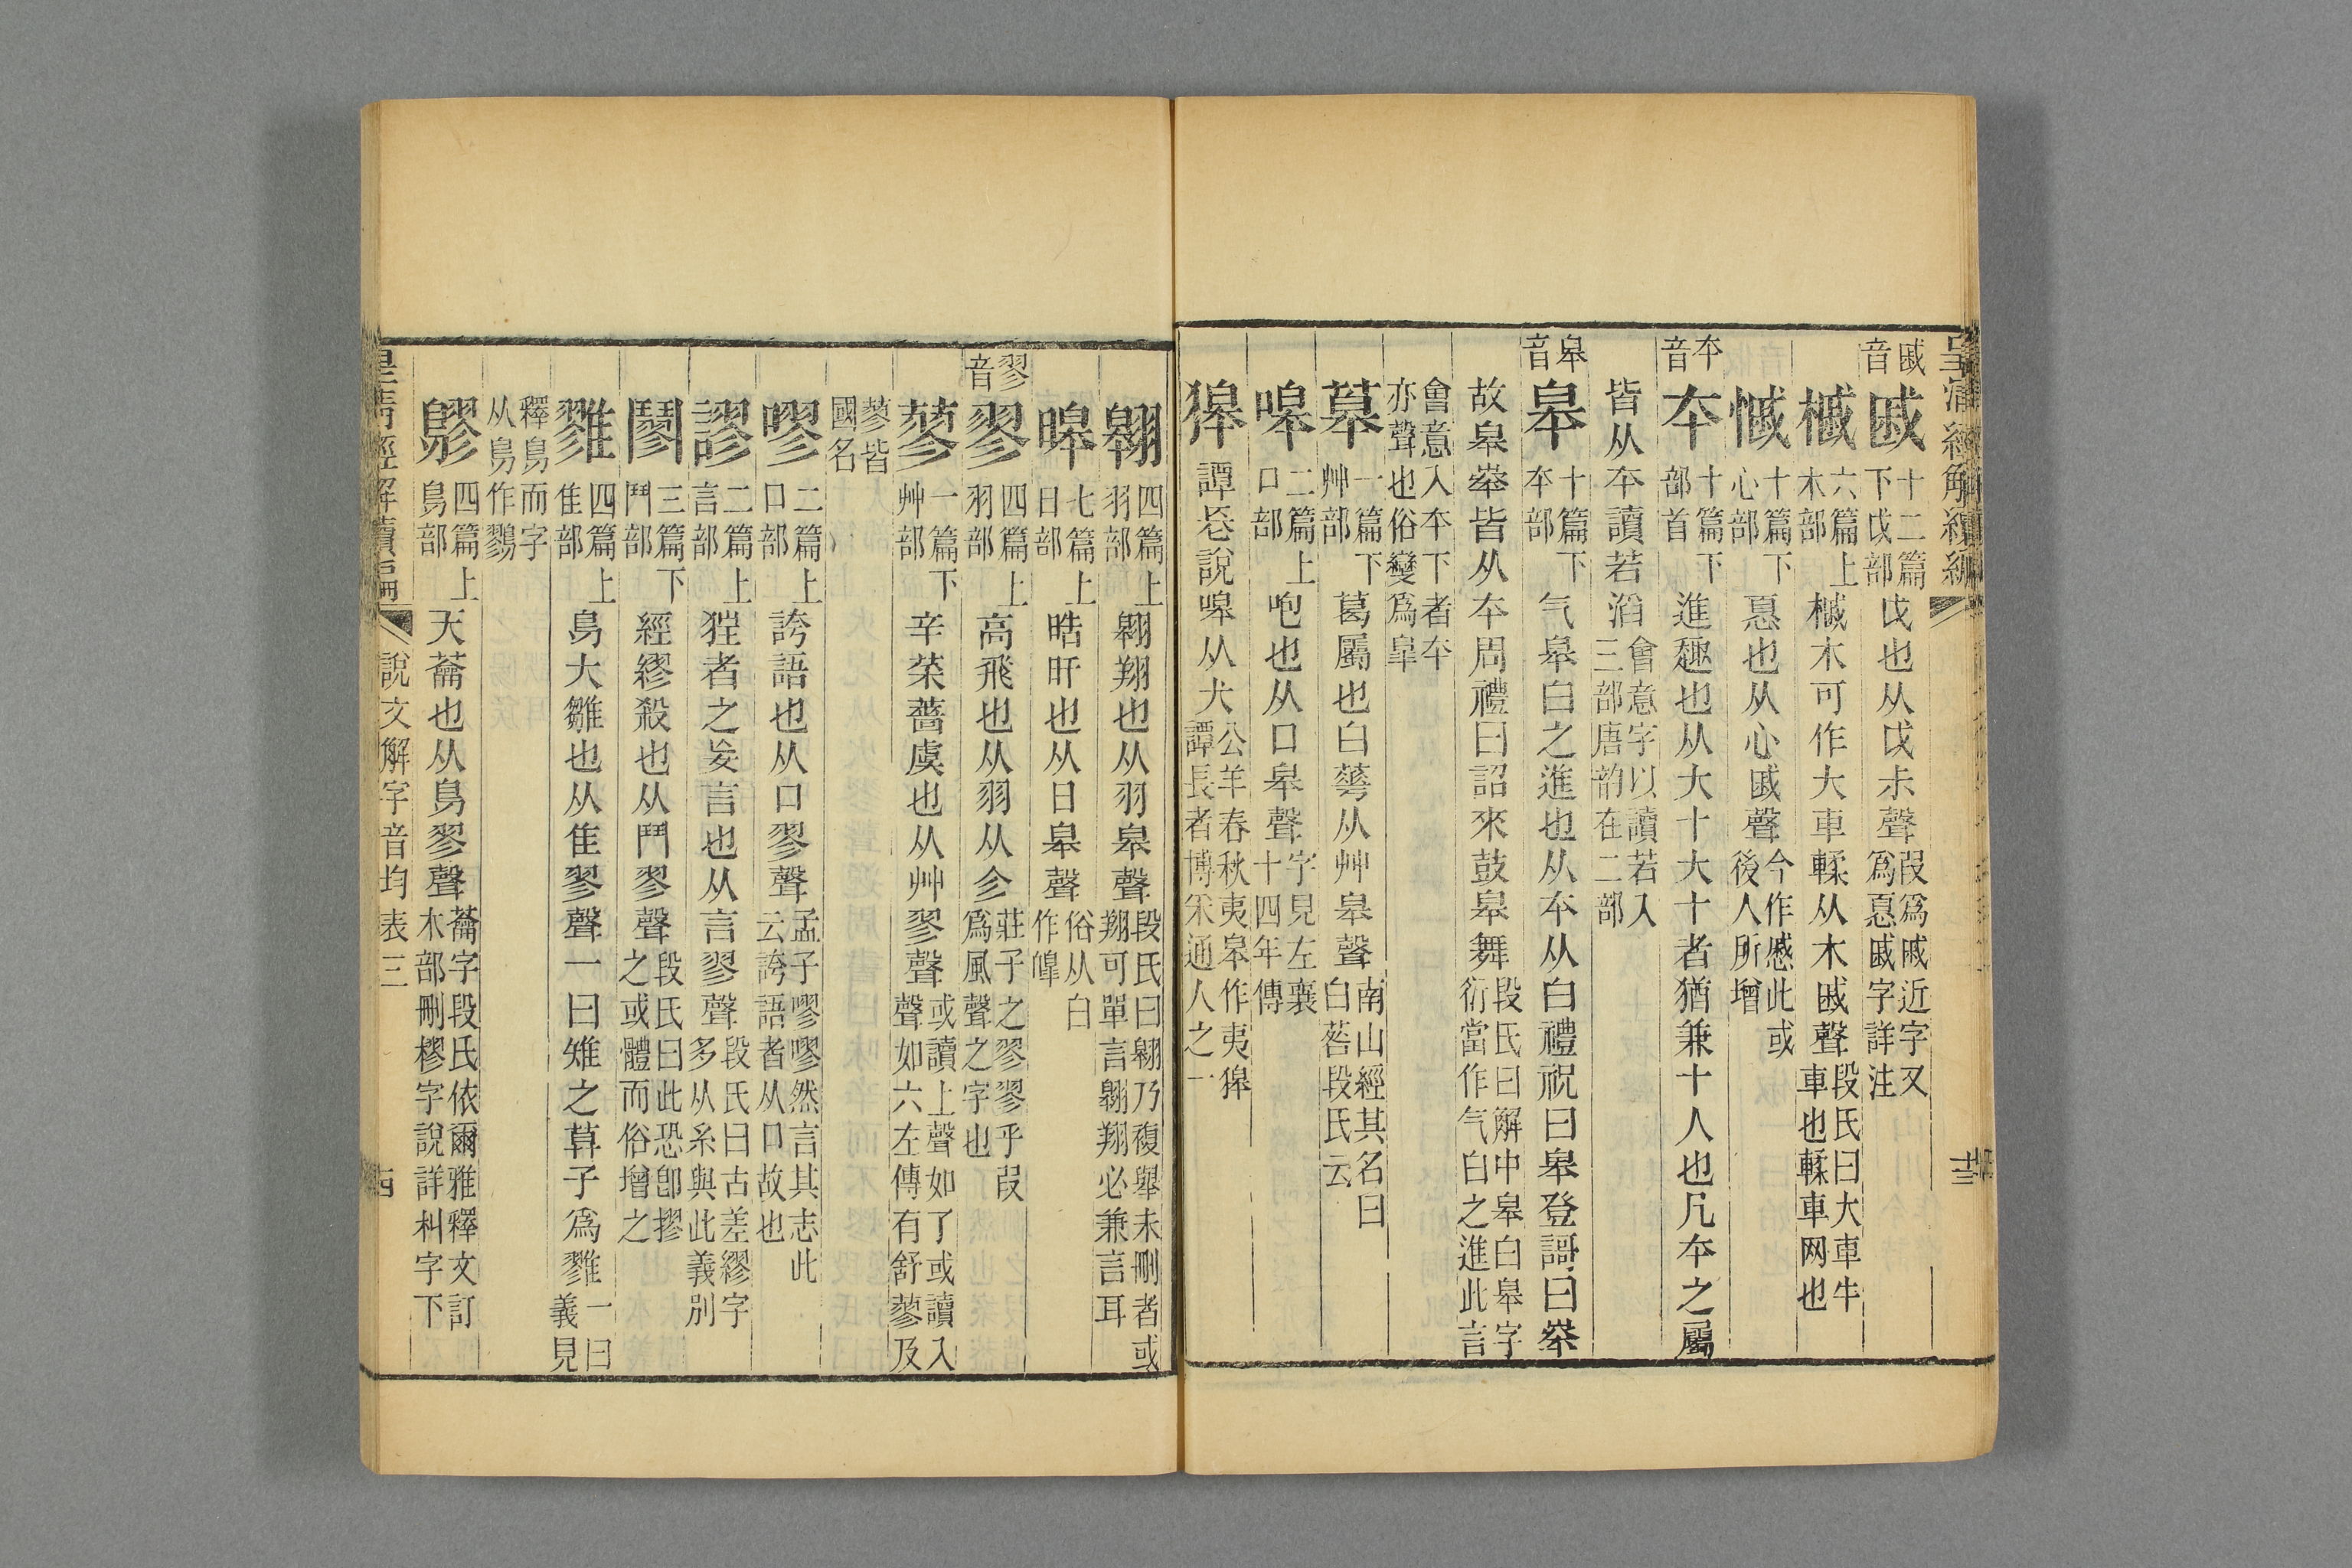 皇清經解續編
戚音 戚 十二篇下戉部 戉也从戉尗聲 叚爲戚近字又爲慼戚字詳注
槭 六篇上木部 槭木可作大車輮从木戚聲 段氏曰大車牛車也輮車网也
慽 十篇下心部 憂也从心戚聲 今作慼此或後人所增
夲音 夲 十篇下部首 進趣也从大十大十者猶兼十人也凡夲之屬
皆从夲讀若滔 會意字以讀若入三部唐韵在二部
皋音 皋 十篇下夲部 气皋白之進也从夲从白禮祝曰皋登謌曰𡘋
故皋𡘋皆从夲周禮曰詔來鼓皋舞 段氏曰解中皋白皋字衍當作气白之進此言
會意入夲下者夲亦聲也俗變爲臯
一篇下艸部 葛屬也白蕚从艸皋聲 南山經其名曰白䓘段氏云
嘷 二篇上口部 咆也从口皋聲 字見左襄十四年傳
獋 譚長說嘷从犬 公羊春秋夷皋作夷獋譚長者博采通人之一
翱 四篇上羽部 翱翔也从羽皋聲 段氏曰翱乃複舉未刪者或翔可單言翱翔必兼言耳
暤 七篇上日部 晧旰也从日皋聲 俗从白作皞
翏音 翏 四篇上羽部 高飛也从羽从㐱 莊子之翏翏乎叚爲風聲之字也
蓼 一篇下艸部 辛菜薔虞也从艸翏聲 或讀上聲如了或讀入聲如六左傳有舒蓼及
蓼皆國名
嘐 二篇上口部 誇語也从口翏聲 孟子嘐嘐然言其志此云誇語者从口故也
謬 二篇上言部 狂者之妄言也从言翏聲 段氏曰古差繆字多从糸與此義別
鬭 三篇下鬥部 經繆殺也从鬥翏聲 段氏曰此恐卽摎之或體而俗增之
雡 四篇上隹部 鳥大雛也从隹翏聲一曰雉之莫子爲雡 一曰義見
釋鳥而字从鳥作鷚
鷚 四篇上鳥部 天蘥也从鳥翏聲 蘥字段氏依爾雅釋文訂木部刪樛字說詳朻字下
皇清經解續編 說文解字音均表三